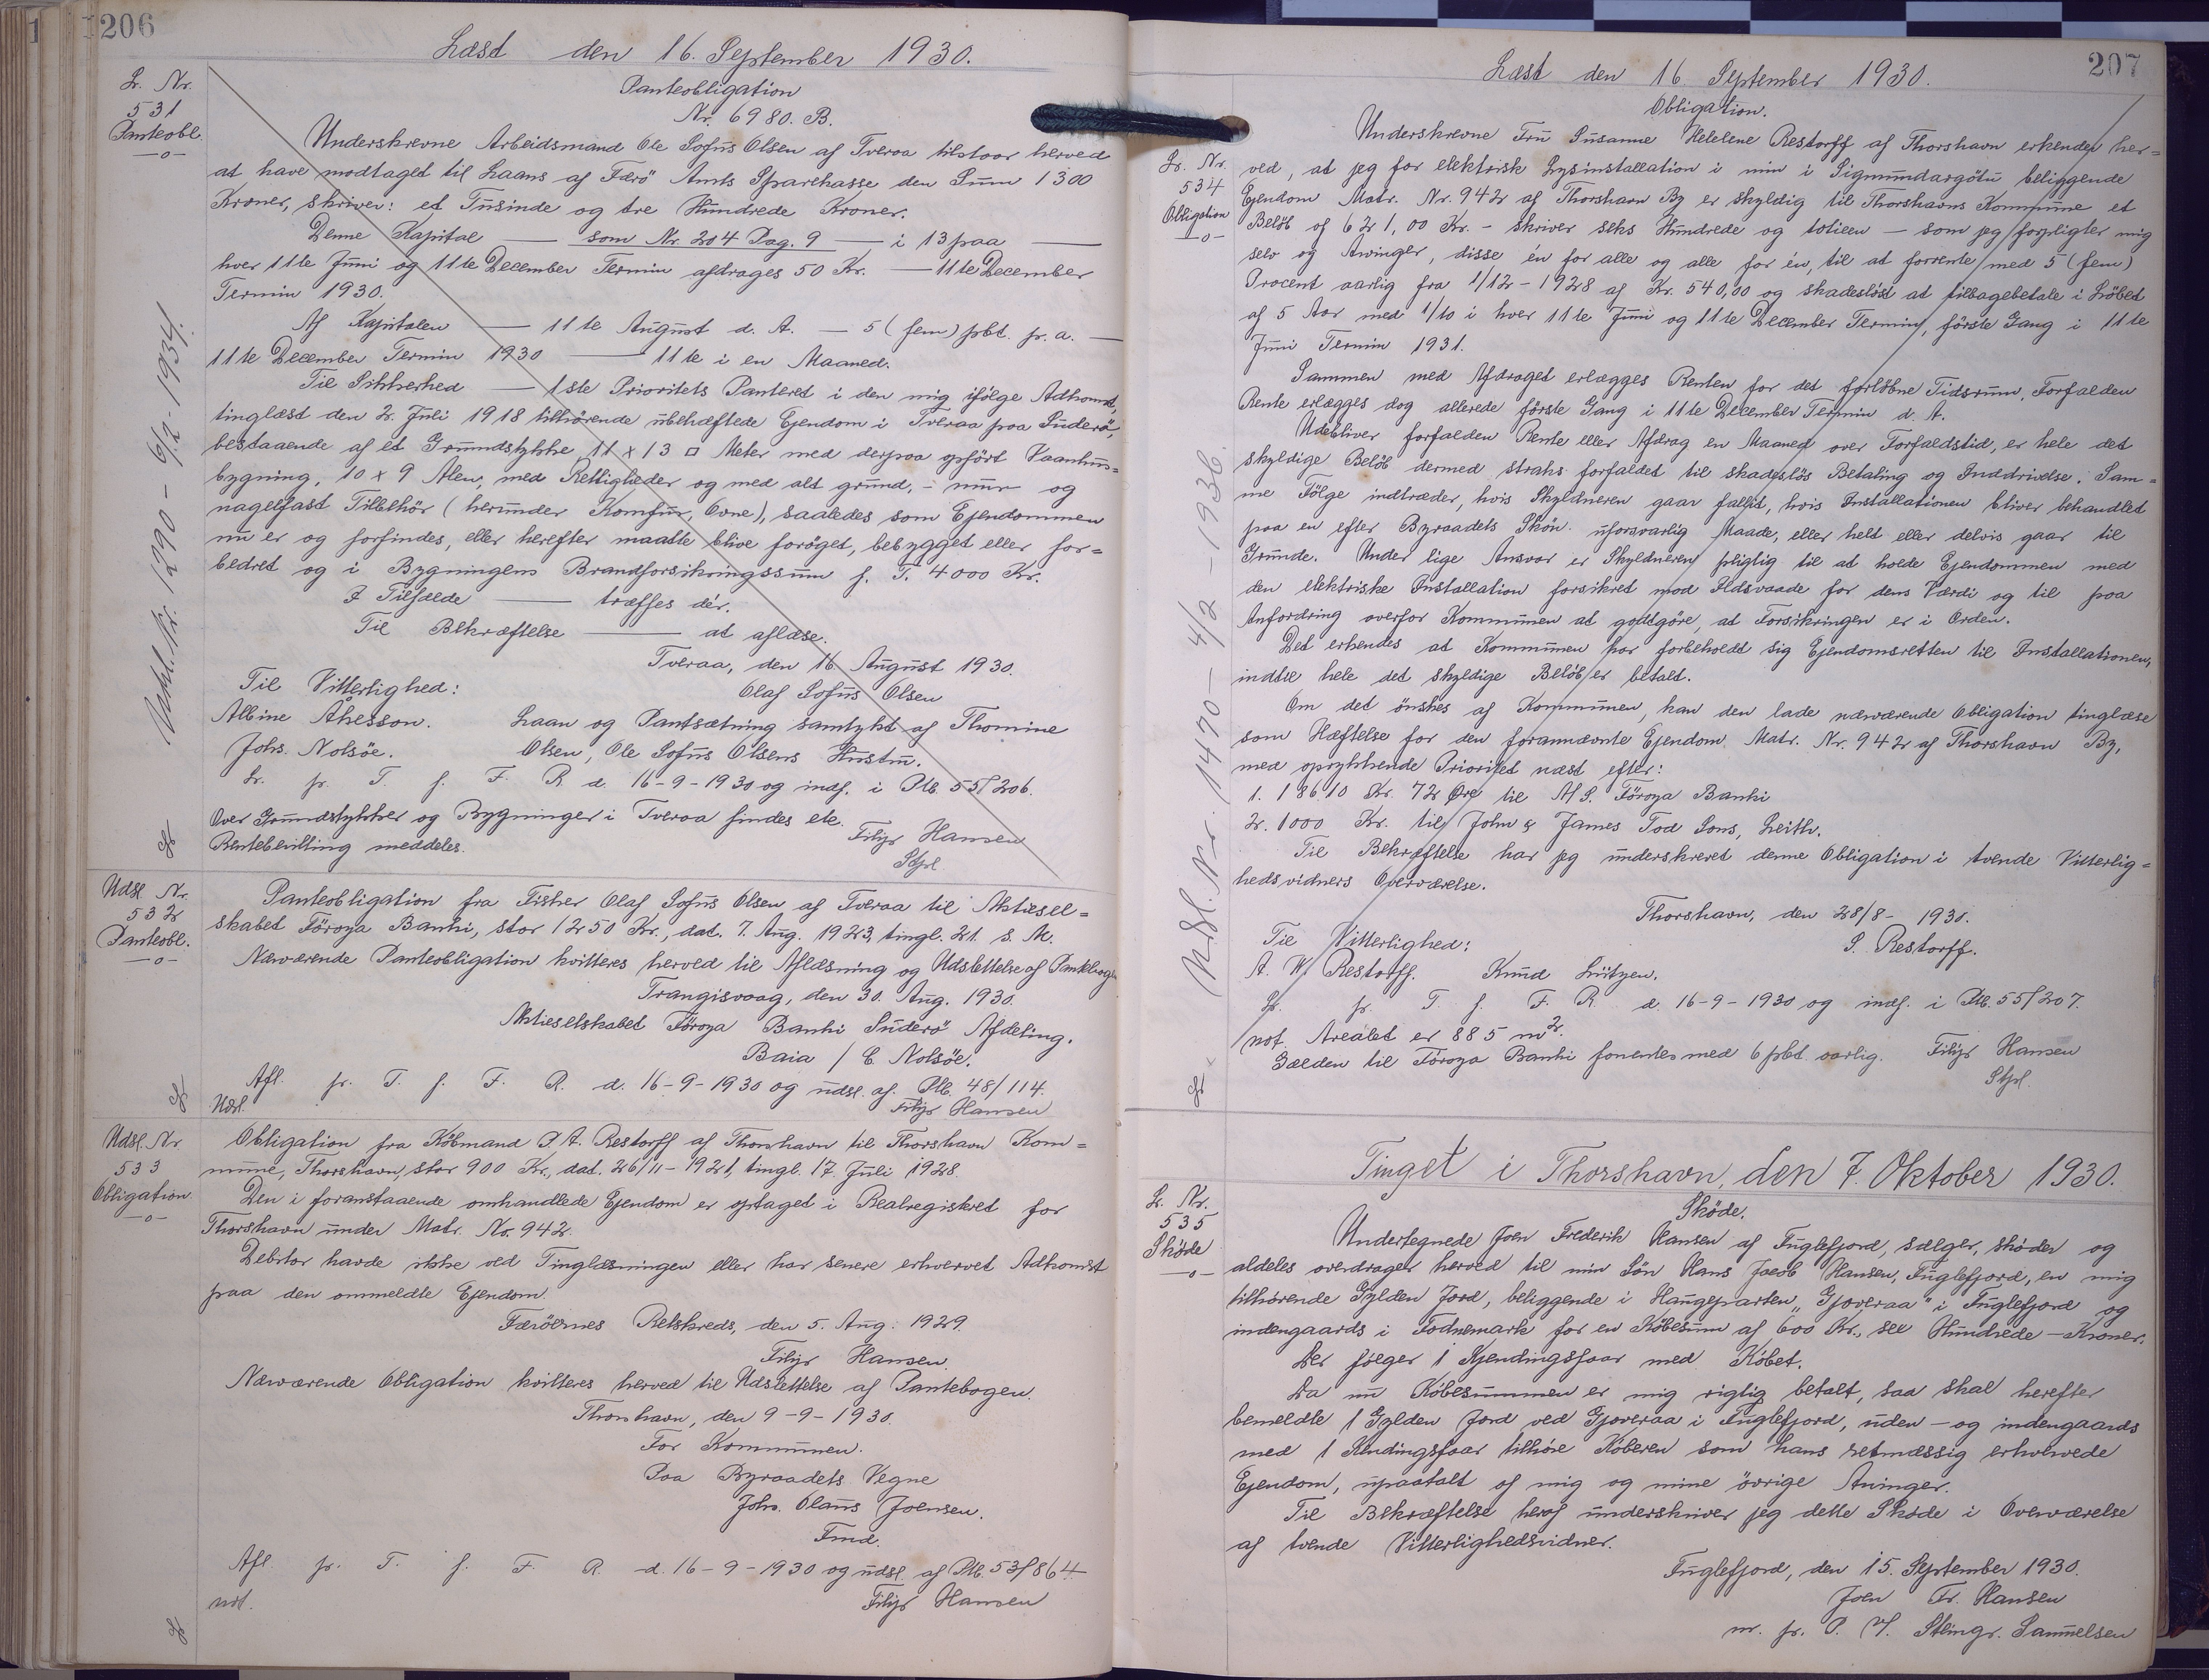 206
Læst den 16. September 1930.
Lr. Nr.
531
Panteobl.
—o—
Panteobligation
Nr. 6980. B.
Underskrevne Arbeidsmand Ole Sofus Olsen af Tveraa tilstaar herved
at have modtaget til Laans af Færö Amts Sparekasse den Sum 1300
Kroner, skriver: et Tusinde og tre Hundrede Kroner.
Denne Kapital — som Nr. 204 Pag. 9 — i 13 paa —
hver 11te Juni og 11te December Termin afdrages 50 Kr. — 11te December
Termin 1930.
Af Kapitalen — 11te August d. A. — 5 (fem) pbt. pr. a. —
11te December Termin 1930 — 11te i en Maaned.
Til Sikkerhed — 1ste Prioritets Panteret i den mig ifölge Adkomst,
tinglæst den 2. Juli 1918 tilhörende ubehæftede Ejendom i Tveraa paa Suderö,
bestaaende af et Grundstykke 11 x 13 □ Meter med derpaa opfört Vaanhus=
bygning, 10 x 9 Alen, med Rettigheder og med alt grund, - mur og
nagelfast Tilbehör (herunder Komfur, Ovne), saaledes som Ejendommen
nu er og forfindes, eller herefter maatte blive foröget, bebygget eller for=
bedret og i Bygningens Brandforsikringssum f. T. 4000 Kr.
I Tilfælde — træffes dér.
Til Bekræftelse — at aflæse.
Tveraa, den 16 August 1930.
Til Vitterlighed:
Olaf Sofus Olsen
Albine Åkesson.
Laan og Pantsætning samtykt af Thomine
Johs. Nolsöe.
Olsen, Ole Sofus Olsens Hustru.
Lr. pr. T. f. F. R. d. 16-9-1930 og indf. i Ptb. 55/206.
Over Grundstykker og Bygninger i Tveraa findes etc.
Rentebevilling meddeles.
Filip Hansen
Stpl
Udsl. Nr. 1290 - 6/2 - 1934.
Udsl Nr.
532
Panteobl.
—o—
Panteobligation fra Fisker Olaf Sofus Olsen af Tveraa til Aktiesel=
skabet Föroya Banki, stor 1250 Kr., dat. 7. Aug. 1923, tingl. 21. s. M.
Nærværende Panteobligation kvitteres herved til Aflæsning og Udslettelse af Pantebogen
Trangisvaag, den 30. Aug. 1930.
Aktieselskabet Föroya Banki Suderö Afdeling.
Baia / C. Nolsöe.
Afl. pr. T. f. F. R. d. 16-9-1930 og udsl. af. Ptb. 48/114.
Udsl.
Filip Hansen
Udsl. Nr
533
Obligation
—o—
Obligation fra Köbmand P. A. Restorff af Thorshavn til Thorshavn Kom=
mune, Thorshavn, stor 900 Kr., dat. 26/11-1921, tingl. 17. Juli 1928.
Den i foranstaaende omhandlede Ejendom er optaget i Realregistret for
Thorshavn under Matr. Nr. 942.
Debitor havde ikke ved Tinglæsningen eller har senere erhvervet Adkomst
paa den ommeldte Ejendom.
Færöernes Retskreds, den 5. Aug. 1929.
Filip Hansen.
Nærværende Obligation kvitteres herved til Udslettelse af Pantebogen.
Thorshavn, den 9-9-1930.
For Kommunen.
Paa Byraadets Vegne
Johs. Olaus Joensen.
Fmd.
Afl pr. T. f. F. R. d. 16-9-1930 og udsl. af Ptb. 53/864.
not.
Filip Hansen
207
Læst den 16 September 1930.
Lr. Nr.
534
Obligation
—o—
Obligation.
Underskrevne Fru Susanne Helelene Restorff af Thorshavn erkender her=
ved, at jeg for elektrisk Lysinstallation i min i Sigmundargötu beliggende
Ejendom Matr. Nr. 942 af Thorshavn By er skyldig til Thorshavns Kommune et
Belöb af 621,00 Kr. - skriver seks Hundrede og toti een — som jeg forpligter mig
selv og Arvinger, disse én for alle og alle for én, til at forrente med 5 (fem)
Procent aarlig fra 1/12-1928 af Kr. 540,00 og skadeslöst at tilbagebetale i Löbet
af 5 Aar med 1/10 i hver 11te Juni og 11te December Termin, förste Gang i 11te
Juni Termin 1931.
Sammen med Afdraget erlægges Renten for det forlöbne Tidsrum, Forfalden
Rente erlægges dog allerede förste Gang i 11te December Termin d. A.
Udebliver forfalden Rente eller Afdrag en Maaned over Forfaldstid, er hele det
skyldige Belöb dermed straks forfaldet til skadeslös Betaling og Inddrivelse. Sam=
me Fölge indtræder, hvis Skyldneren gaar fallit, hvis Installationen bliver behandlet
paa en efter Byraadets Skön uforsvarlig Maade, eller helt eller delvis gaar til
Grunde. Under lige Ansvar er Skyldneren pligtig til at holde Ejendommen med
den elektriske Installation forsikret mod Ildsvaade for dens Værdi og til paa
Anfordring overfor Kommunen at godtgöre, at Forsikringen er i Orden.
Det erkendes at Kommunen har forbeholdt sig Ejendomsretten til Installationen,
indtil hele det skyldige Belöb er betalt.
Om det önskes af Kommunen, kan den lade nærværende Obligation tinglæse
som Hæftelse for den forannævnte Ejendom Matr. Nr. 942 af Thorshavn By,
med oprykkende Prioritet næst efter:
1. 18610 Kr. 72 Øre til A/S. Föroya Banki
2. 1000 Kr. til John & James Tod Sons, Leith.
Til Bekræftelse har jeg underskrevet denne Obligation i tvende Vitterlig=
hedsvidners Overværelse.
Thorshavn, den 28/8 - 1930.
Til Vitterlighed:
S. Restorff.
A. W. Restorff. Knud Lützen.
Lr. pr. T. f. F. R. d. 16-9-1930 og indf. i Ptb. 55/207.
not. Arealet er 885 m2.
Gælden til Föroya Banki forrentes med 6 pbt. aarlig.
Filip Hansen
Stpl.
Udsl. Nr. 1470 - 4/2 - 1936.
Tinget i Thorshavn, den 7. Oktober 1930.
Lr. Nr.
535
Sköde
—o—
Sköde.
Undertegnede Joen Frederik Hansen af Fuglefjord, sælger, sköder og
aldeles overdrager herved til min Sön Hans Jacob Hansen, Fuglefjord, en mig
tilhörende Gylden Jord, beliggende i Haugeparten „Gjoveraa" i Fuglefjord og
indengaards i Todnemark for en Köbesum af 600 Kr., sex Hundrede — Kroner.
Der fölger 1 Kjendingsfaar med Köbet.
Da nu Köbesummen er mig rigtig betalt, saa skal herefter
bemeldte 1 Gylden Jord ved Gjoveraa i Fuglefjord, uden - og indengaards
med 1 Kendingsfaar tilhöre Köberen som hans retmæssig erhvervede
Ejendom, upaatalt af mig og mine övrige Arvinger.
Til Bekræftelse heraf underskriver jeg dette Sköde i Overværelse
af tvende Vitterlighedsvidner.
Fuglefjord, den 15. September 1930.
Joen Fr. Hansen
m. p. P.